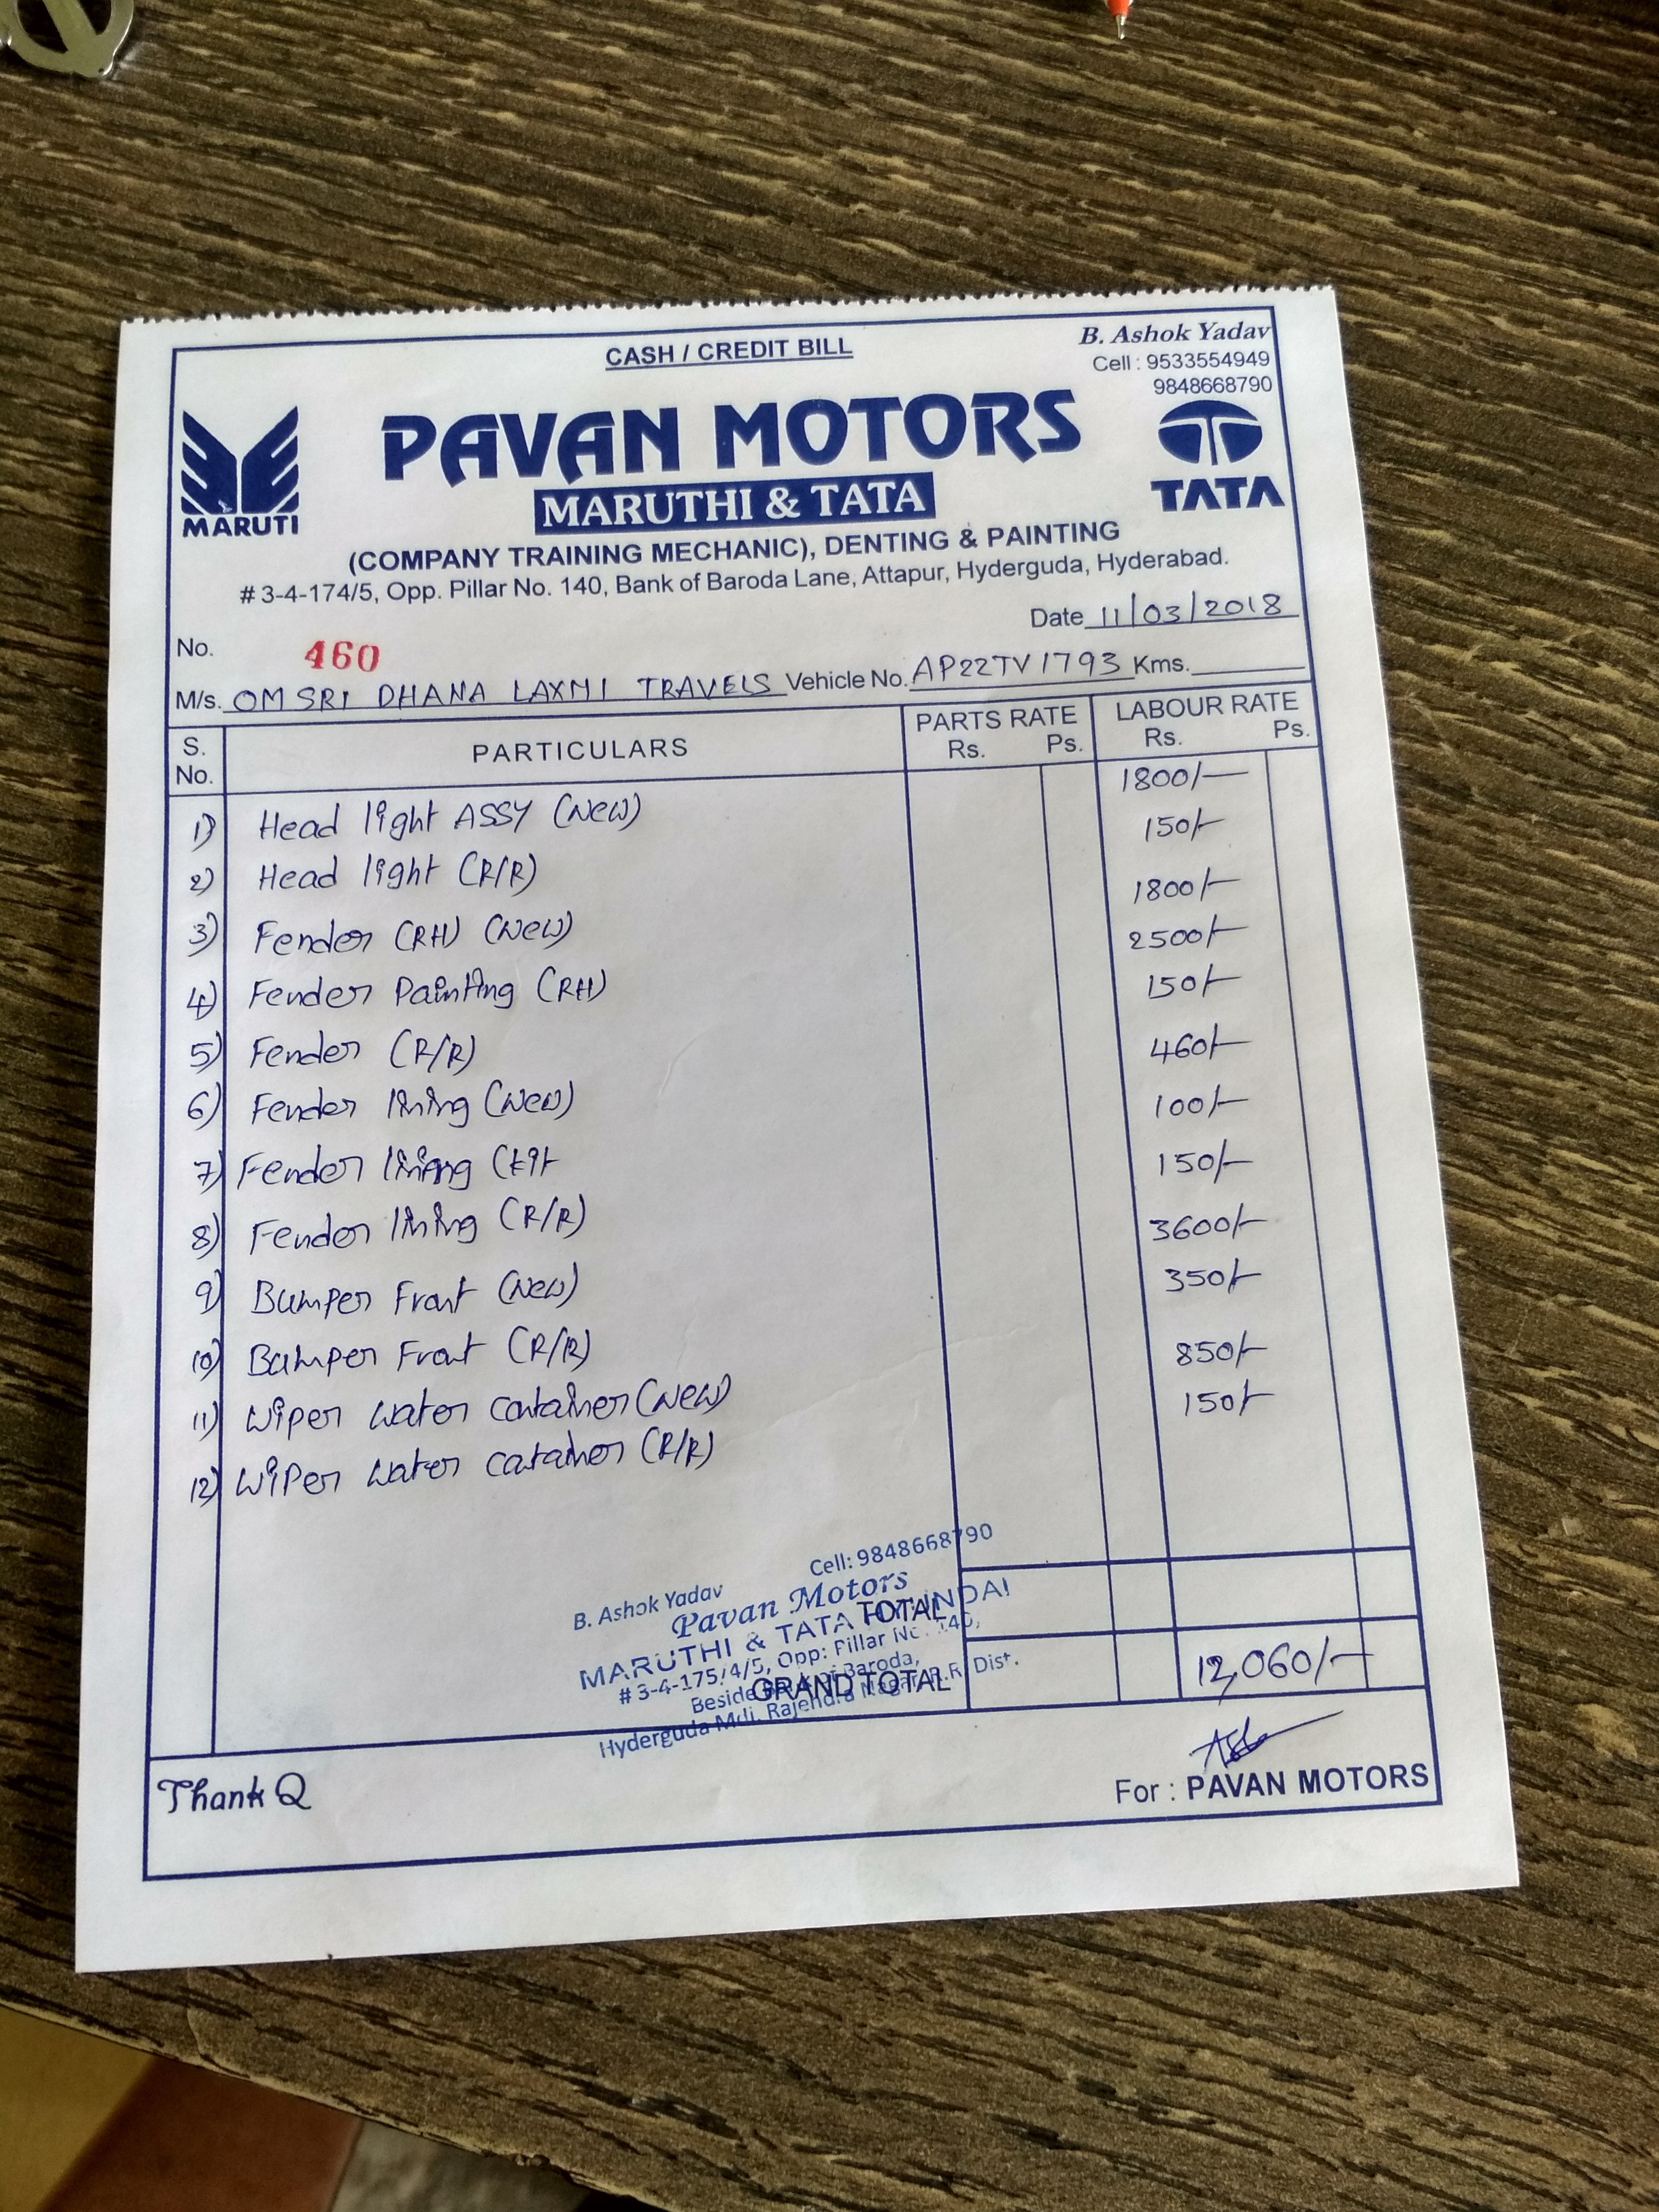 CASH / CREDIT BILL
B. Ashok Yadav
Cell : 9533554949
9848668790
MARUTI
PAVAN MOTORS
TATA
MARUTHI & TATA
(COMPANY TRAINING MECHANIC), DENTING & PAINTING
# 3-4-174/5, Opp. Pillar No. 140, Bank of Baroda Lane, Attapur, Hyderguda, Hyderabad.
Date 11/03/2018
No. 460
M/s. OM SRI DHANA LAXMI TRAVELS Vehicle No. AP22TV1793 Kms.
S. No. PARTICULARS PARTS RATE Rs. Ps. LABOUR RATE Rs. Ps.
1) Head light ASSY (New) 1800/-
2) Head light (R/R) 150/-
3) Fender (RH) (New) 1800/-
4) Fender Painting (RH) 2500/-
5) Fender (R/R) 150/-
6) Fender lining (New) 460/-
7) Fender lining 100/-
8) Fender lining (R/R) 150/-
9) Bumper Front (New) 3600/-
10) Bumper Front (R/R) 350/-
11) Wiper water container (New) 850/-
12) Wiper water catainer (R/R) 150/-
B. Ashok Yadav Cell: 9848668790
Pavan Motors
MARUTHI & TATA
# 3-4-175/4/5, Opp: Pillar No. 140,
Beside Baroda,
Hyderguda Mdl, Rajendra Nagar, R.R. Dist.
TOTAL
GRAND TOTAL 12,060/-
Thank Q
For : PAVAN MOTORS